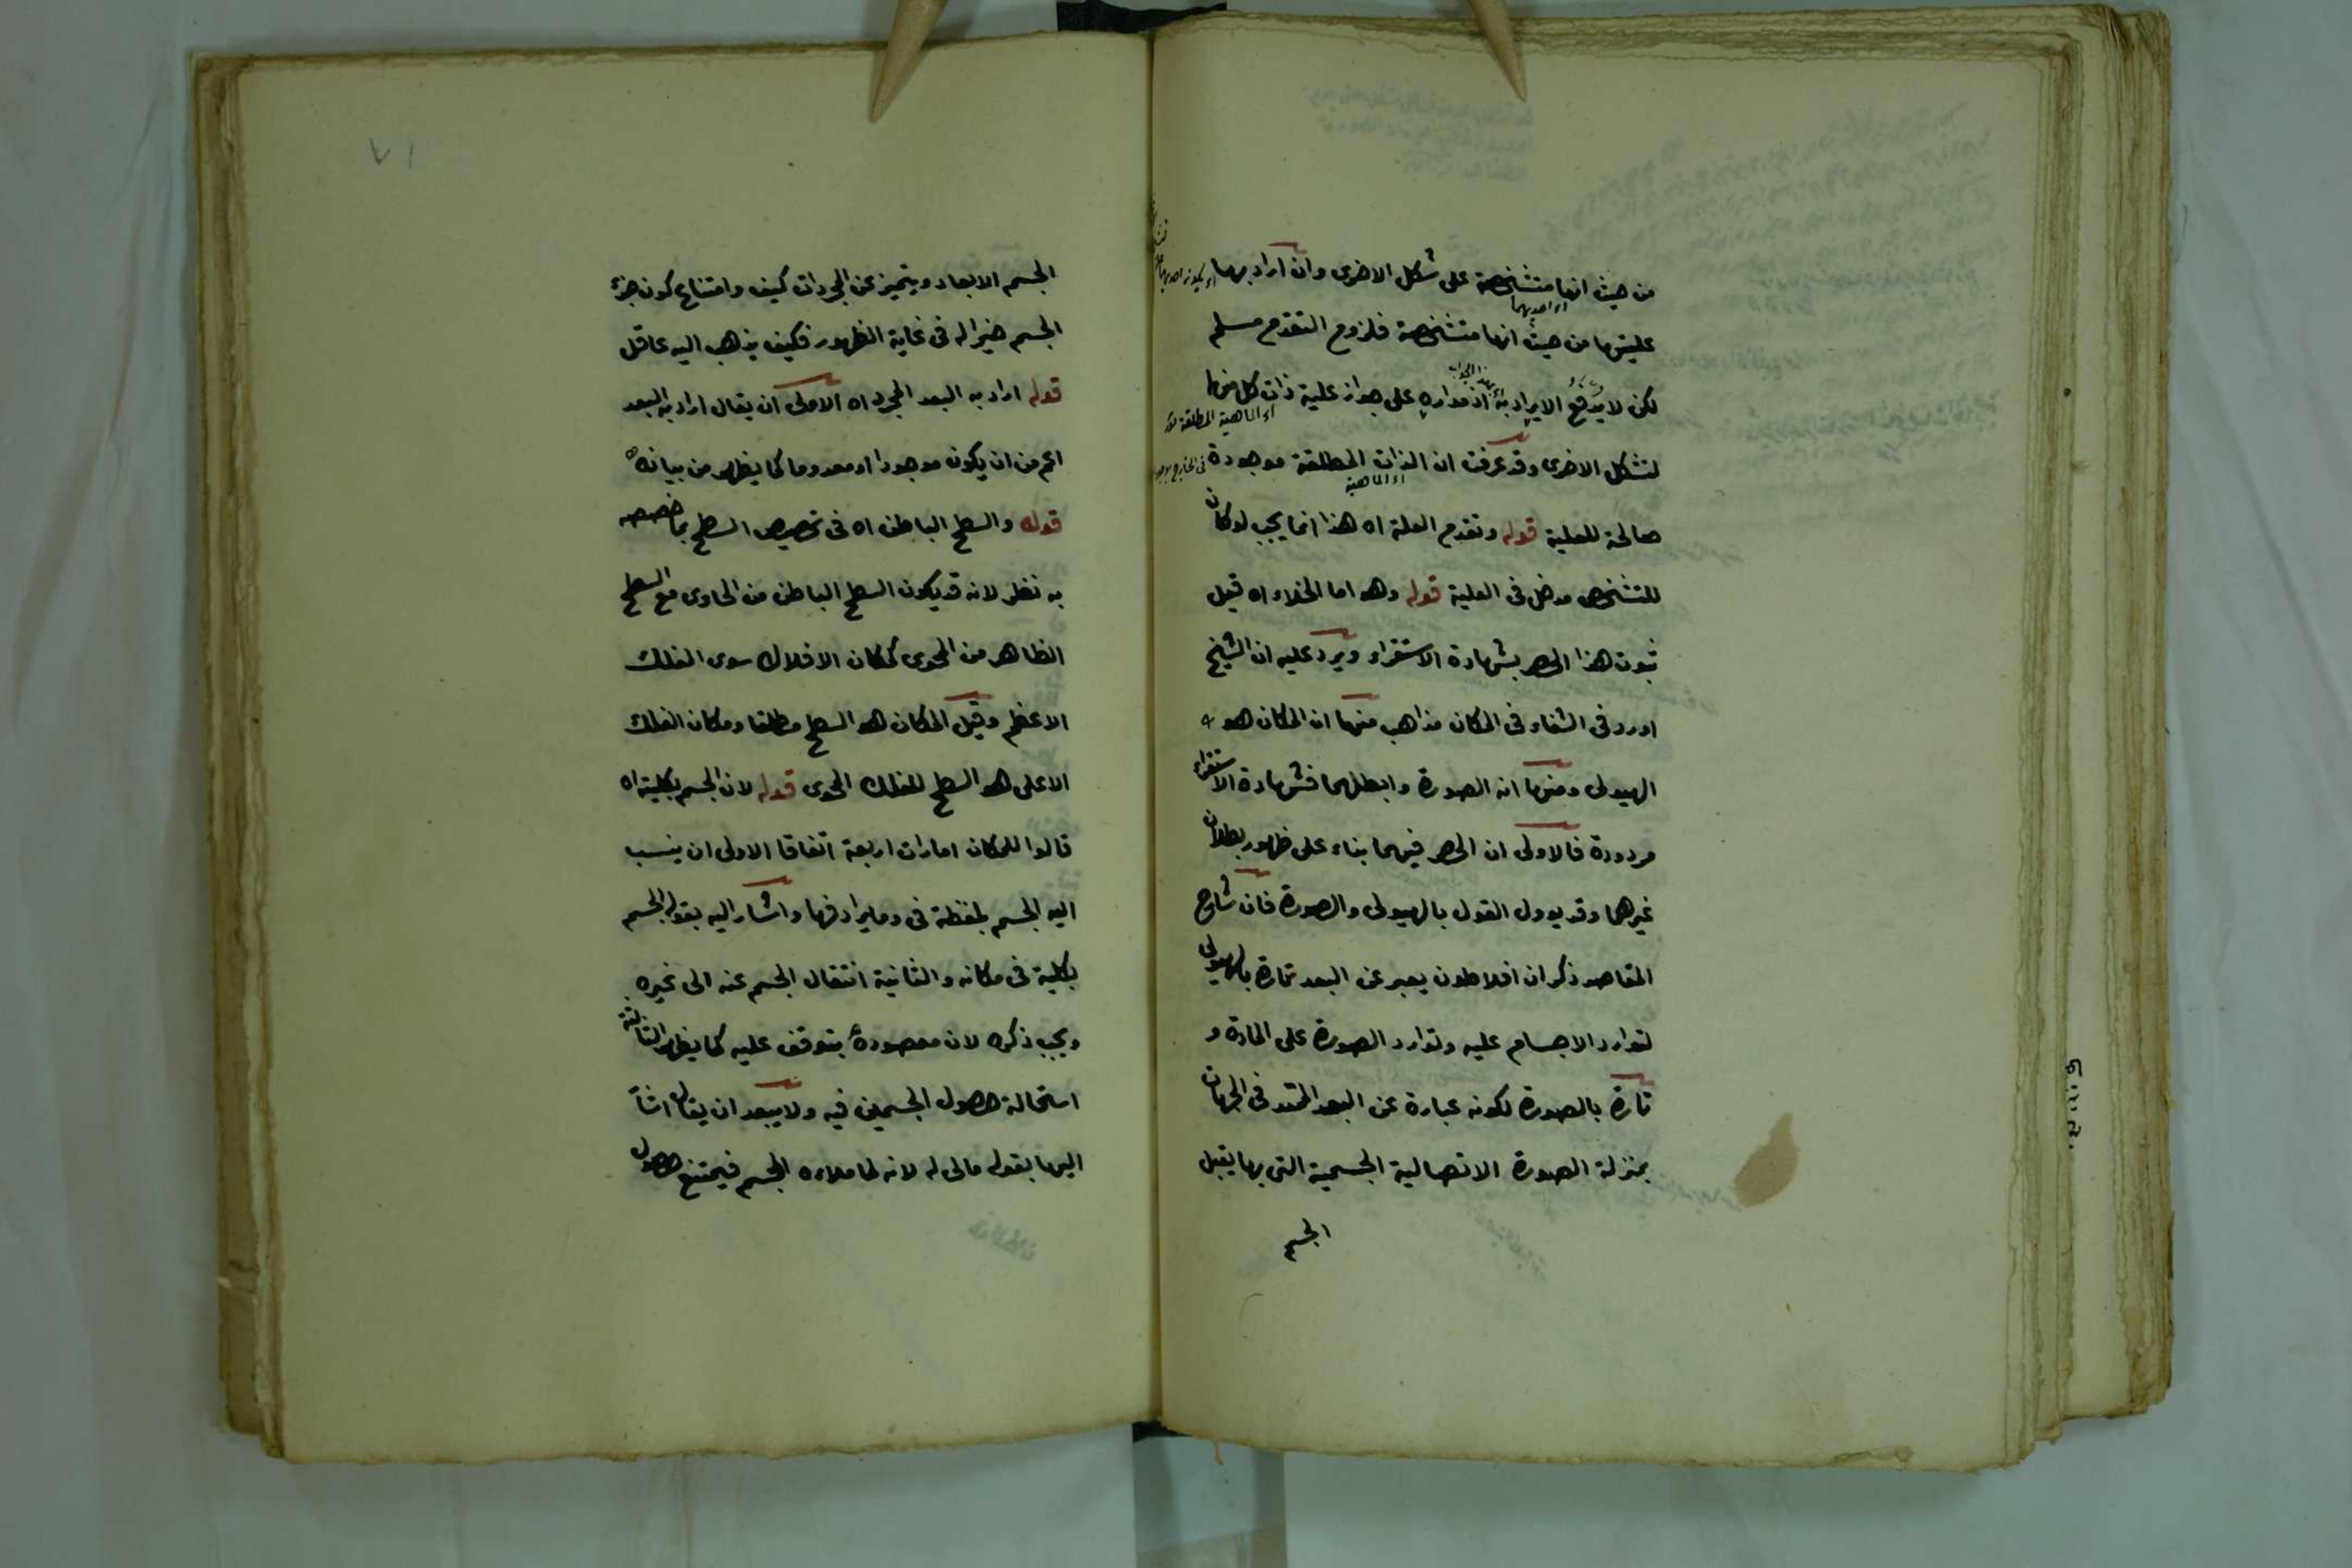 من حيث انها متشخصة على شكل الاخرى وان اراد بها
اى احديهما
عليتها من حيث انها متشخصة فلزوم التقدم مسلم
لكن لا يندفع الايراد به اذ مداره على جواز علية ذات كل منها
اى الماهية المطلقة
لتشكل الاخرى وقد عرفت ان الذات المطلقة موجودة
اى الماهية
صالحة للعلية قوله وتقدم العلة اه هذا انما يجب لو كان
للتشخص مدخل فى العلية قوله وهو اما الخلاء اه قيل
ثبوت هذا الحصر بشهادة الاستقراء ويرد عليه ان الشيخ
اورد فى الشفاء فى المكان مذاهب منها ان المكان هو
الهيولى ومنها انه الصورة وابطلهما فشهادة الاستقراء
مردودة فالاولى ان الحصر فيهما بناء على ظهور بطلان
غيرهما وقد يوول القول بالهيولى والصورة فان شارح
المقاصد ذكر ان افلاطون يعبر عن البعد تارة بالهيولى
لتوارد الاجسام عليه وتوارد الصورة على المادة و
تارة بالصورة لكونه عبارة عن البعد الممتد فى الجهات
بمنزلة الصورة الاتصالية الجسمية التى بها يقبل
الجسم
٧١
الجسم الابعاد ويتميز عن المجردات كيف وامتناع كون جزء
الجسم حيزا له فى غاية الظهور فكيف يذهب اليه عاقل
قوله اراد به البعد المجرد اه الاولى ان يقال اراد به البعد
اعم من ان يكون موجودا او معدوما كما يظهر من بيانه
قوله والسطح الباطن اه فى تخصيص السطح بما خصصه
به نظر لانه قد يكون السطح الباطن من الحاوى مع السطح
الظاهر من المحوى كمكان الافلاك سوى الفلك
الاعظم وقيل المكان هو السطح مطلقا ومكان الفلك
الاعلى هو السطح للفلك المحوى قوله لان الجسم بكليته اه
قالوا للمكان امارات اربعة اتفاقا الاولى ان ينسب
اليه الجسم بلفظة فى وما يرادفها واشار اليه بقوله الجسم
بكليته فى مكانه والثانية انتقال الجسم عنه الى غيره
ويجب ذكره لان مقصوده يتوقف عليه كما يظهر الثالثة
استحالة حصول الجسمين فيه ولا يبعد ان يقال اشار
اليها بقوله مالى له لانه لما ملاءه الجسم فيمتنع حصول